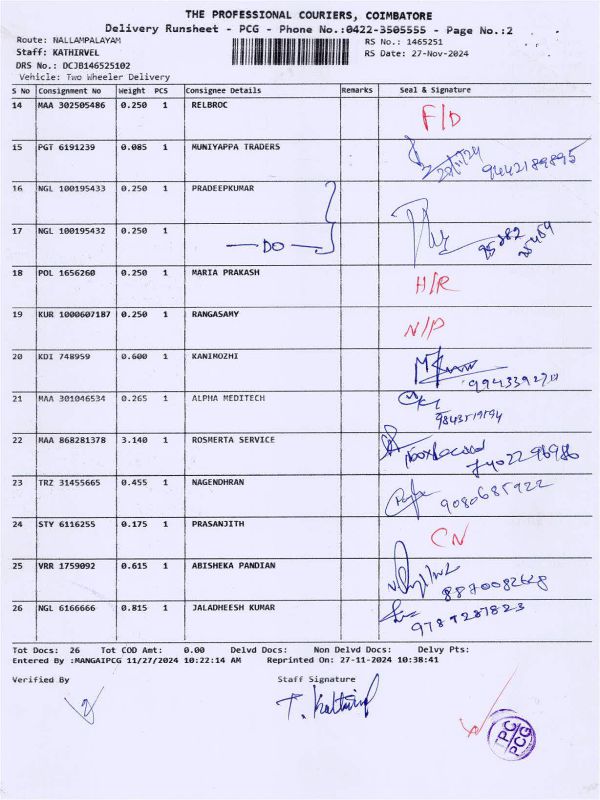 THE PROFESSIONAL COURIERS, COIMBATORE
Delivery Runsheet - PCG - Phone No.:0422-3505555 - Page No.:2
Route: NALLAMPALAYAM RS No.: 1465251
Staff: KATHIRVEL RS Date: 27-Nov-2024
DRS No.: DCJB146525102
Vehicle: Two Wheeler Delivery
S No Consignment No Weight PCS Consignee Details Remarks Seal & Signature
14 MAA 302505486 0.250 1 RELBROC F/D
15 PGT 6191239 0.085 1 MUNIYAPPA TRADERS 9442189895
16 NGL 100195433 0.250 1 PRADEEPKUMAR
17 NGL 100195432 0.250 1 DO
18 POL 1656260 0.250 1 MARIA PRAKASH H/R
19 KUR 1000607187 0.250 1 RANGASAMY N/P
20 KDI 748959 0.600 1 KANIMOZHI
21 MAA 301046534 0.265 1 ALPHA MEDITECH
22 MAA 868281378 3.140 1 ROSMERTA SERVICE
23 TRZ 31455665 0.455 1 NAGENDHRAN 9080685922
24 STY 6116255 0.175 1 PRASANJITH CN
25 VRR 1759092 0.615 1 ABISHEKA PANDIAN
26 NGL 6166666 0.815 1 JALADHEESH KUMAR 9787287823
Tot Docs: 26 Tot COD Amt: 0.00 Delvd Docs: Non Delvd Docs: Delvy Pts:
Entered By :MANGAIPCG 11/27/2024 10:22:14 AM Reprinted On: 27-11-2024 10:38:41
Verified By Staff Signature
TPC
PCG